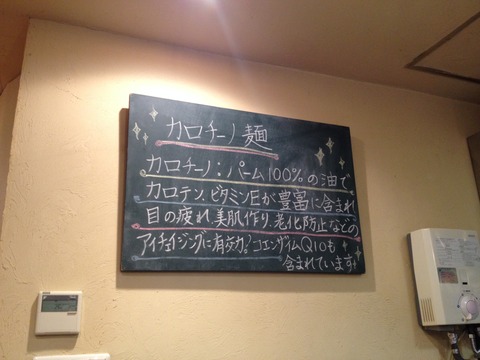 カロチーノ麺
カロチーノ：パーム100%の油で
カロテン、ビタミンEが豊富に含まれ
目の疲れ、美肌作り、老化防止などの
アイチエイジングに有効力？コエンザイムQ10も
含まれています